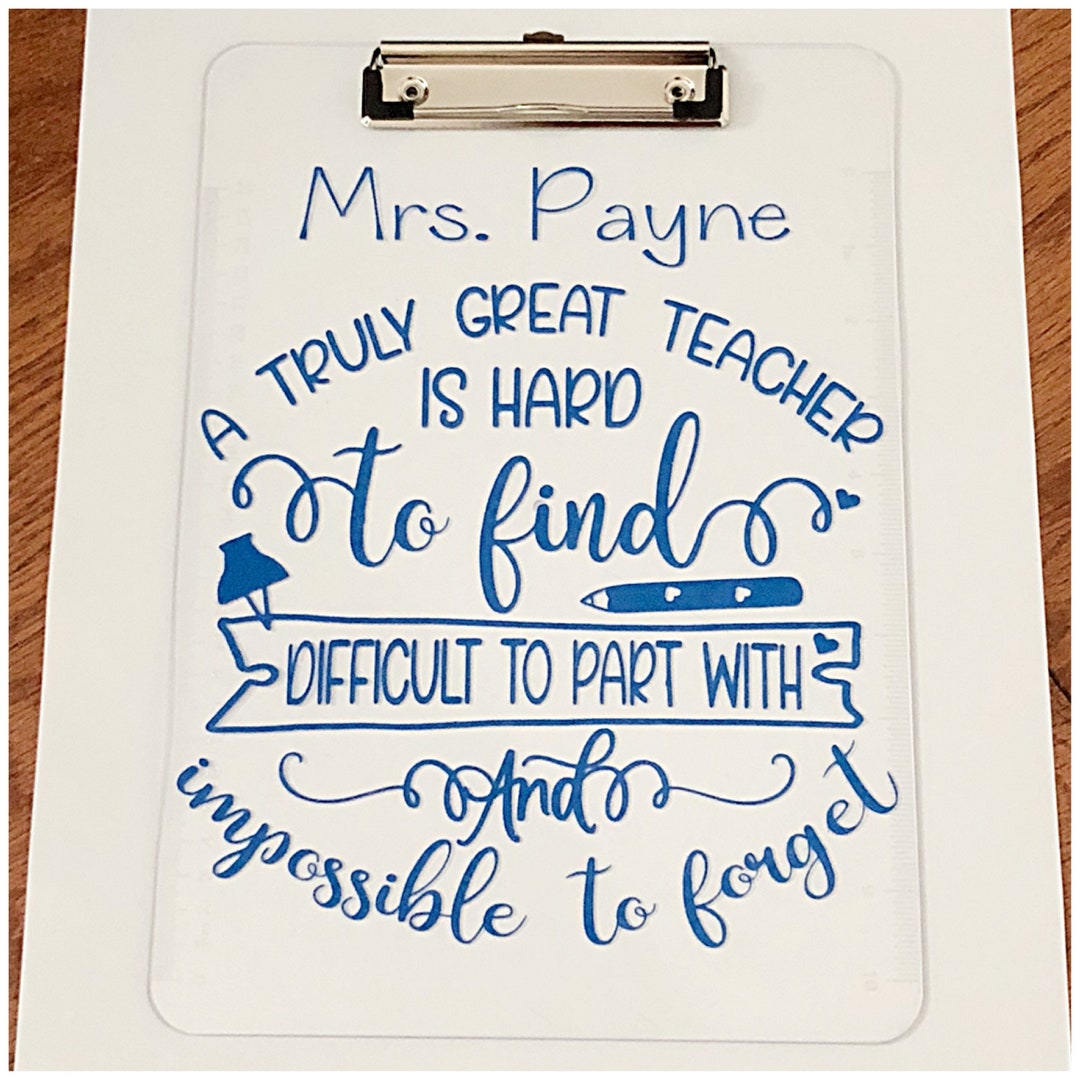 Mrs. Payne
A TRULY GREAT TEACHER
IS HARD
to find
DIFFICULT TO PART WITH
And
impossible to forget